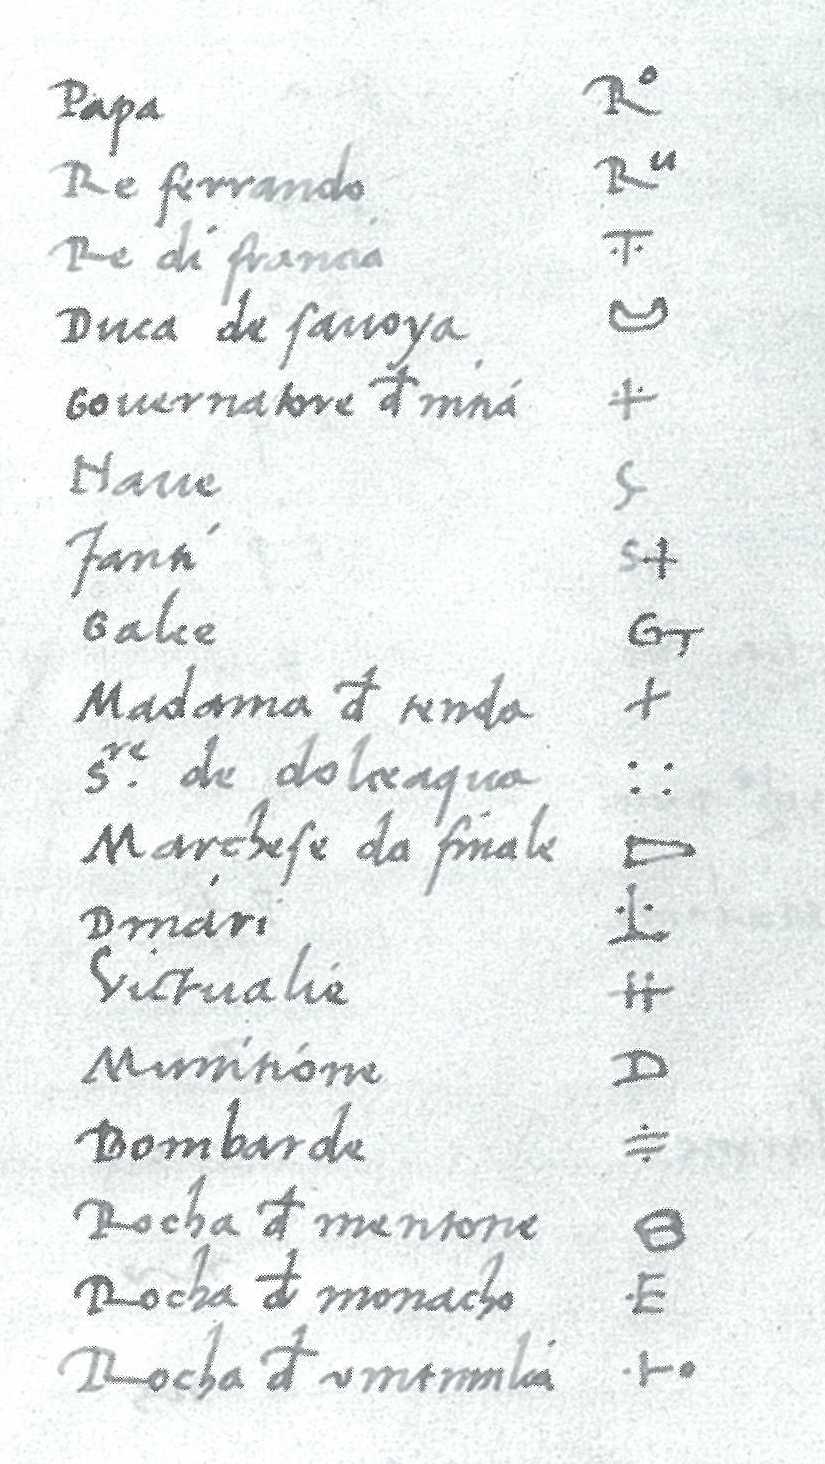 Papa R°
Re ferrando Rᵘ
Re di francia
Duca de sauoya
Gouernatore đ
Naue
Fanti S+
Galee GT
Madama đ tenda +
Sʳᵉ. de dolceaqua ::
Marchese do finale
Dinari
Victualie
Munitione D
Bombarde
Rocha đ mentone
Rocha đ monacho E
Rocha đ